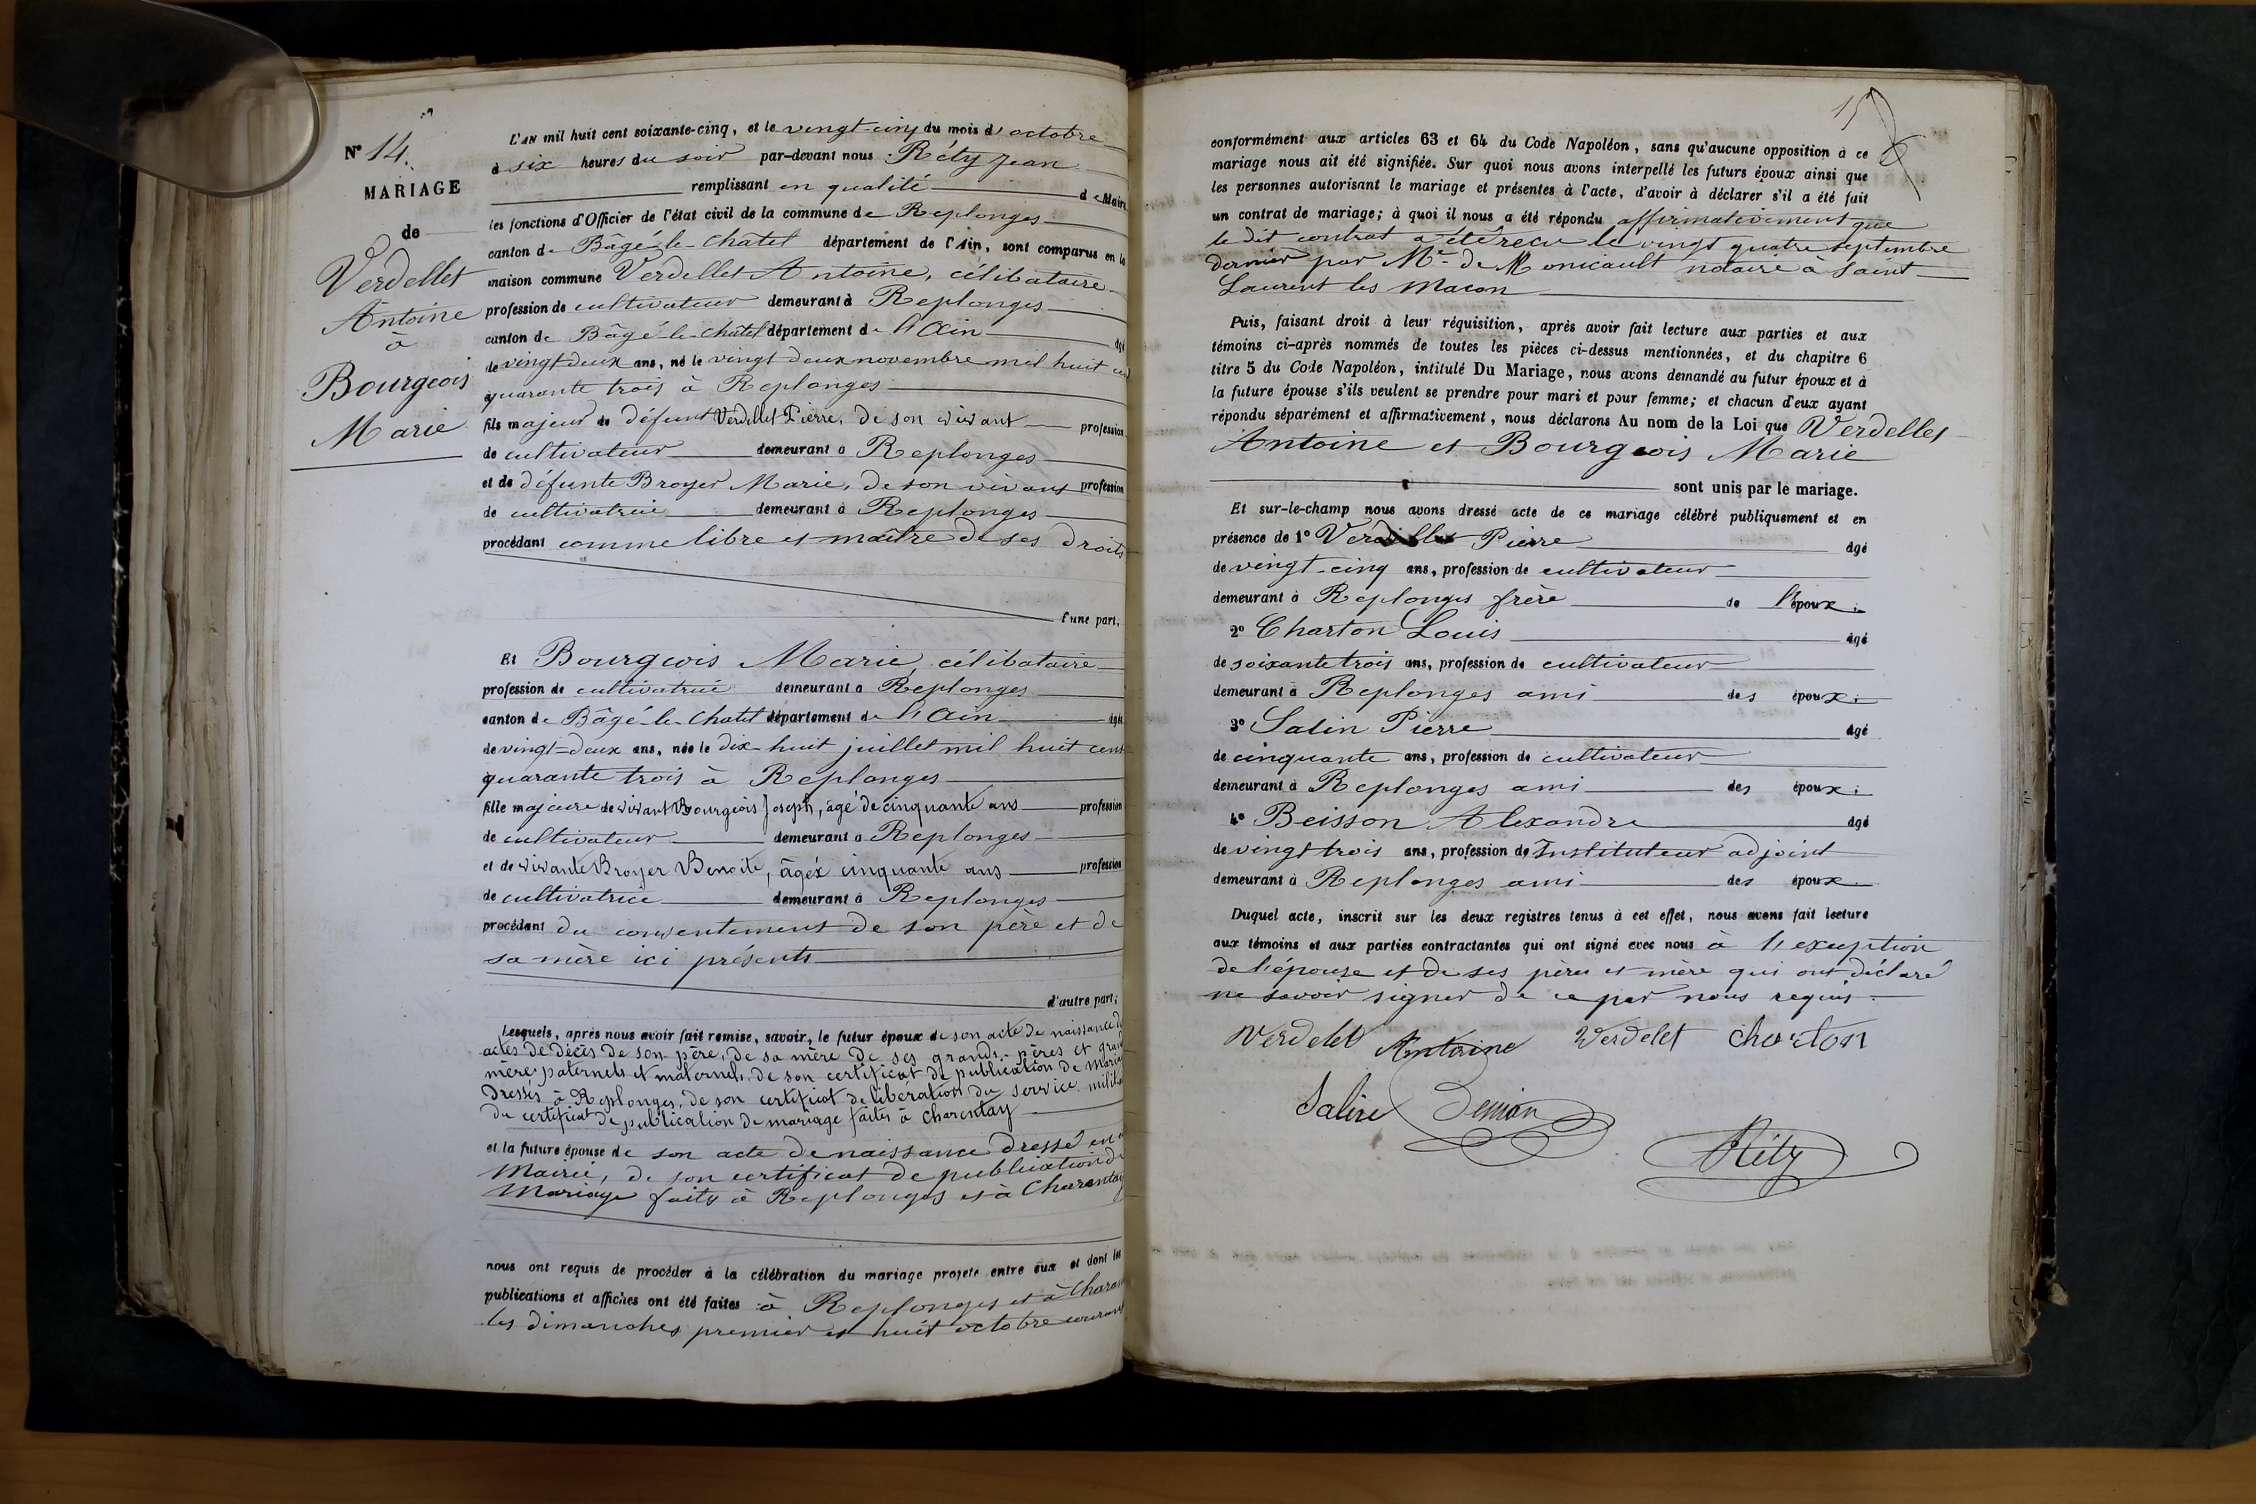 N° 14.
MARIAGE
de
Verdellet
Antoine
à
Bourgeois
Marie
L'AN mil huit cent soixante-cinq, et le vingt-cinq du mois d'octobre
à six heures du soir par-devant nous Réty Jean
remplissant en qualité de Maire
les fonctions d'Officier de l'état civil de la commune de Replonges
canton de Bâgé-le-Chatel département de l'Ain, sont comparus en la
maison commune Verdellet Antoine, célibataire
profession de cultivateur demeurant à Replonges
canton de Bâgé-le-Chatel département de l'Ain âgé
de vingt-deux ans, né le vingt deux novembre mil huit cent
quarante trois à Replonges
fils majeur de défunt Verdellet Pierre, de son vivant profession
de cultivateur demeurant à Replonges
et de défunte Broyer Marie, de son vivant profession
de cultivatrice demeurant à Replonges
procédant comme libre et maître de ses droits
d'une part,
Et Bourgeois Marie, célibataire
profession de cultivatrice demeurant à Replonges
canton de Bâgé-le-Chatel département de l'Ain âgée
de vingt-deux ans, née le dix-huit juillet mil huit cent
quarante trois à Replonges
fille majeure de vivant Bourgeois Joseph, âgé de cinquante ans profession
de cultivateur demeurant à Replonges
et de vivante Broyer Benoite, âgée cinquante ans profession
de cultivatrice demeurant à Replonges
procédant du consentement de son père et de
sa mère ici présents
d'autre part;
Lesquels, après nous avoir fait remise, savoir, le futur époux de son acte de naissance de
actes de décès de son père, de sa mère de ses grands-pères et grand
mère paternels et maternels, de son certificat de publication de mariage
Dressés à Replonges, de son certificat de libération du service
du certificat de publication de mariage faites à Charentay
et la future épouse de son acte de naissance dressé en
Mairie, de son certificat de publication de
Mariage faits à Replonges et à Charentay
nous ont requis de procéder à la célébration du mariage projeté entre eux et dont les
publications et affiches ont été faites à Replonges et à
les dimanches premier et huit octobre courant
15
conformément aux articles 63 et 64 du Code Napoléon, sans qu'aucune opposition à ce
mariage nous ait été signifiée. Sur quoi nous avons interpellé les futurs époux ainsi que
les personnes autorisant le mariage et présentes à l'acte, d'avoir à déclarer s'il a été fait
un contrat de mariage; à quoi il nous a été répondu affirmativement que
le dit contrat a été reçu le vingt quatre septembre
dernier par Me de Monicault notaire à Saint
Laurent les Macon
Puis, faisant droit à leur réquisition, après avoir fait lecture aux parties et aux
témoins ci-après nommés de toutes les pièces ci-dessus mentionnées, et du chapitre 6
titre 5 du Code Napoléon, intitulé Du Mariage, nous avons demandé au futur époux et à
la future épouse s'ils veulent se prendre pour mari et pour femme; et chacun d'eux ayant
répondu séparément et affirmativement, nous déclarons Au nom de la Loi que Verdellet
Antoine et Bourgeois Marie
sont unis par le mariage.
Et sur-le-champ nous avons dressé acte de ce mariage célébré publiquement et en
présence de 1° Verdellet Pierre âgé
de vingt-cinq ans, profession de cultivateur
demeurant à Replonges frère de l'époux;
2° Charton Louis âgé
de soixante trois ans, profession de cultivateur
demeurant à Replonges ami des époux;
3° Salin Pierre âgé
de cinquante ans, profession de cultivateur
demeurant à Replonges ami des époux;
4° Beisson Alexandre âgé
de vingt trois ans, profession de Instituteur adjoint
demeurant à Replonges ami des époux
Duquel acte, inscrit sur les deux registres tenus à cet effet, nous avons fait lecture
aux témoins et aux parties contractantes qui ont signé avec nous à l'exception
de l'épouse et de ses père et mère qui ont déclaré
ne savoir signer de ce par nous requis.
Verdelet Antoine Verdelet Charton
Réty